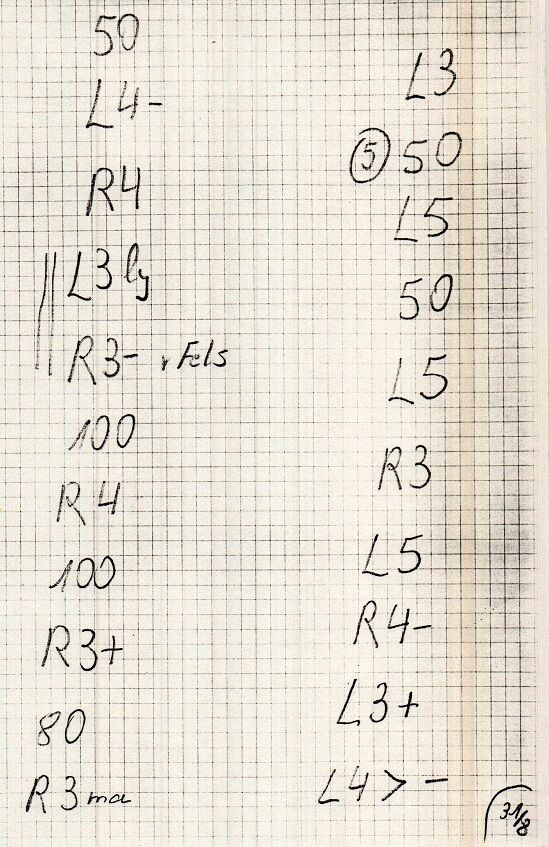 50
L4-
R4
L3 lg
R3- v Fels
100
R4
100
R3+
80
R3 ma
L3
5 50
L5
50
L5
R3
L5
R4-
L3+
L4 > -
31/8